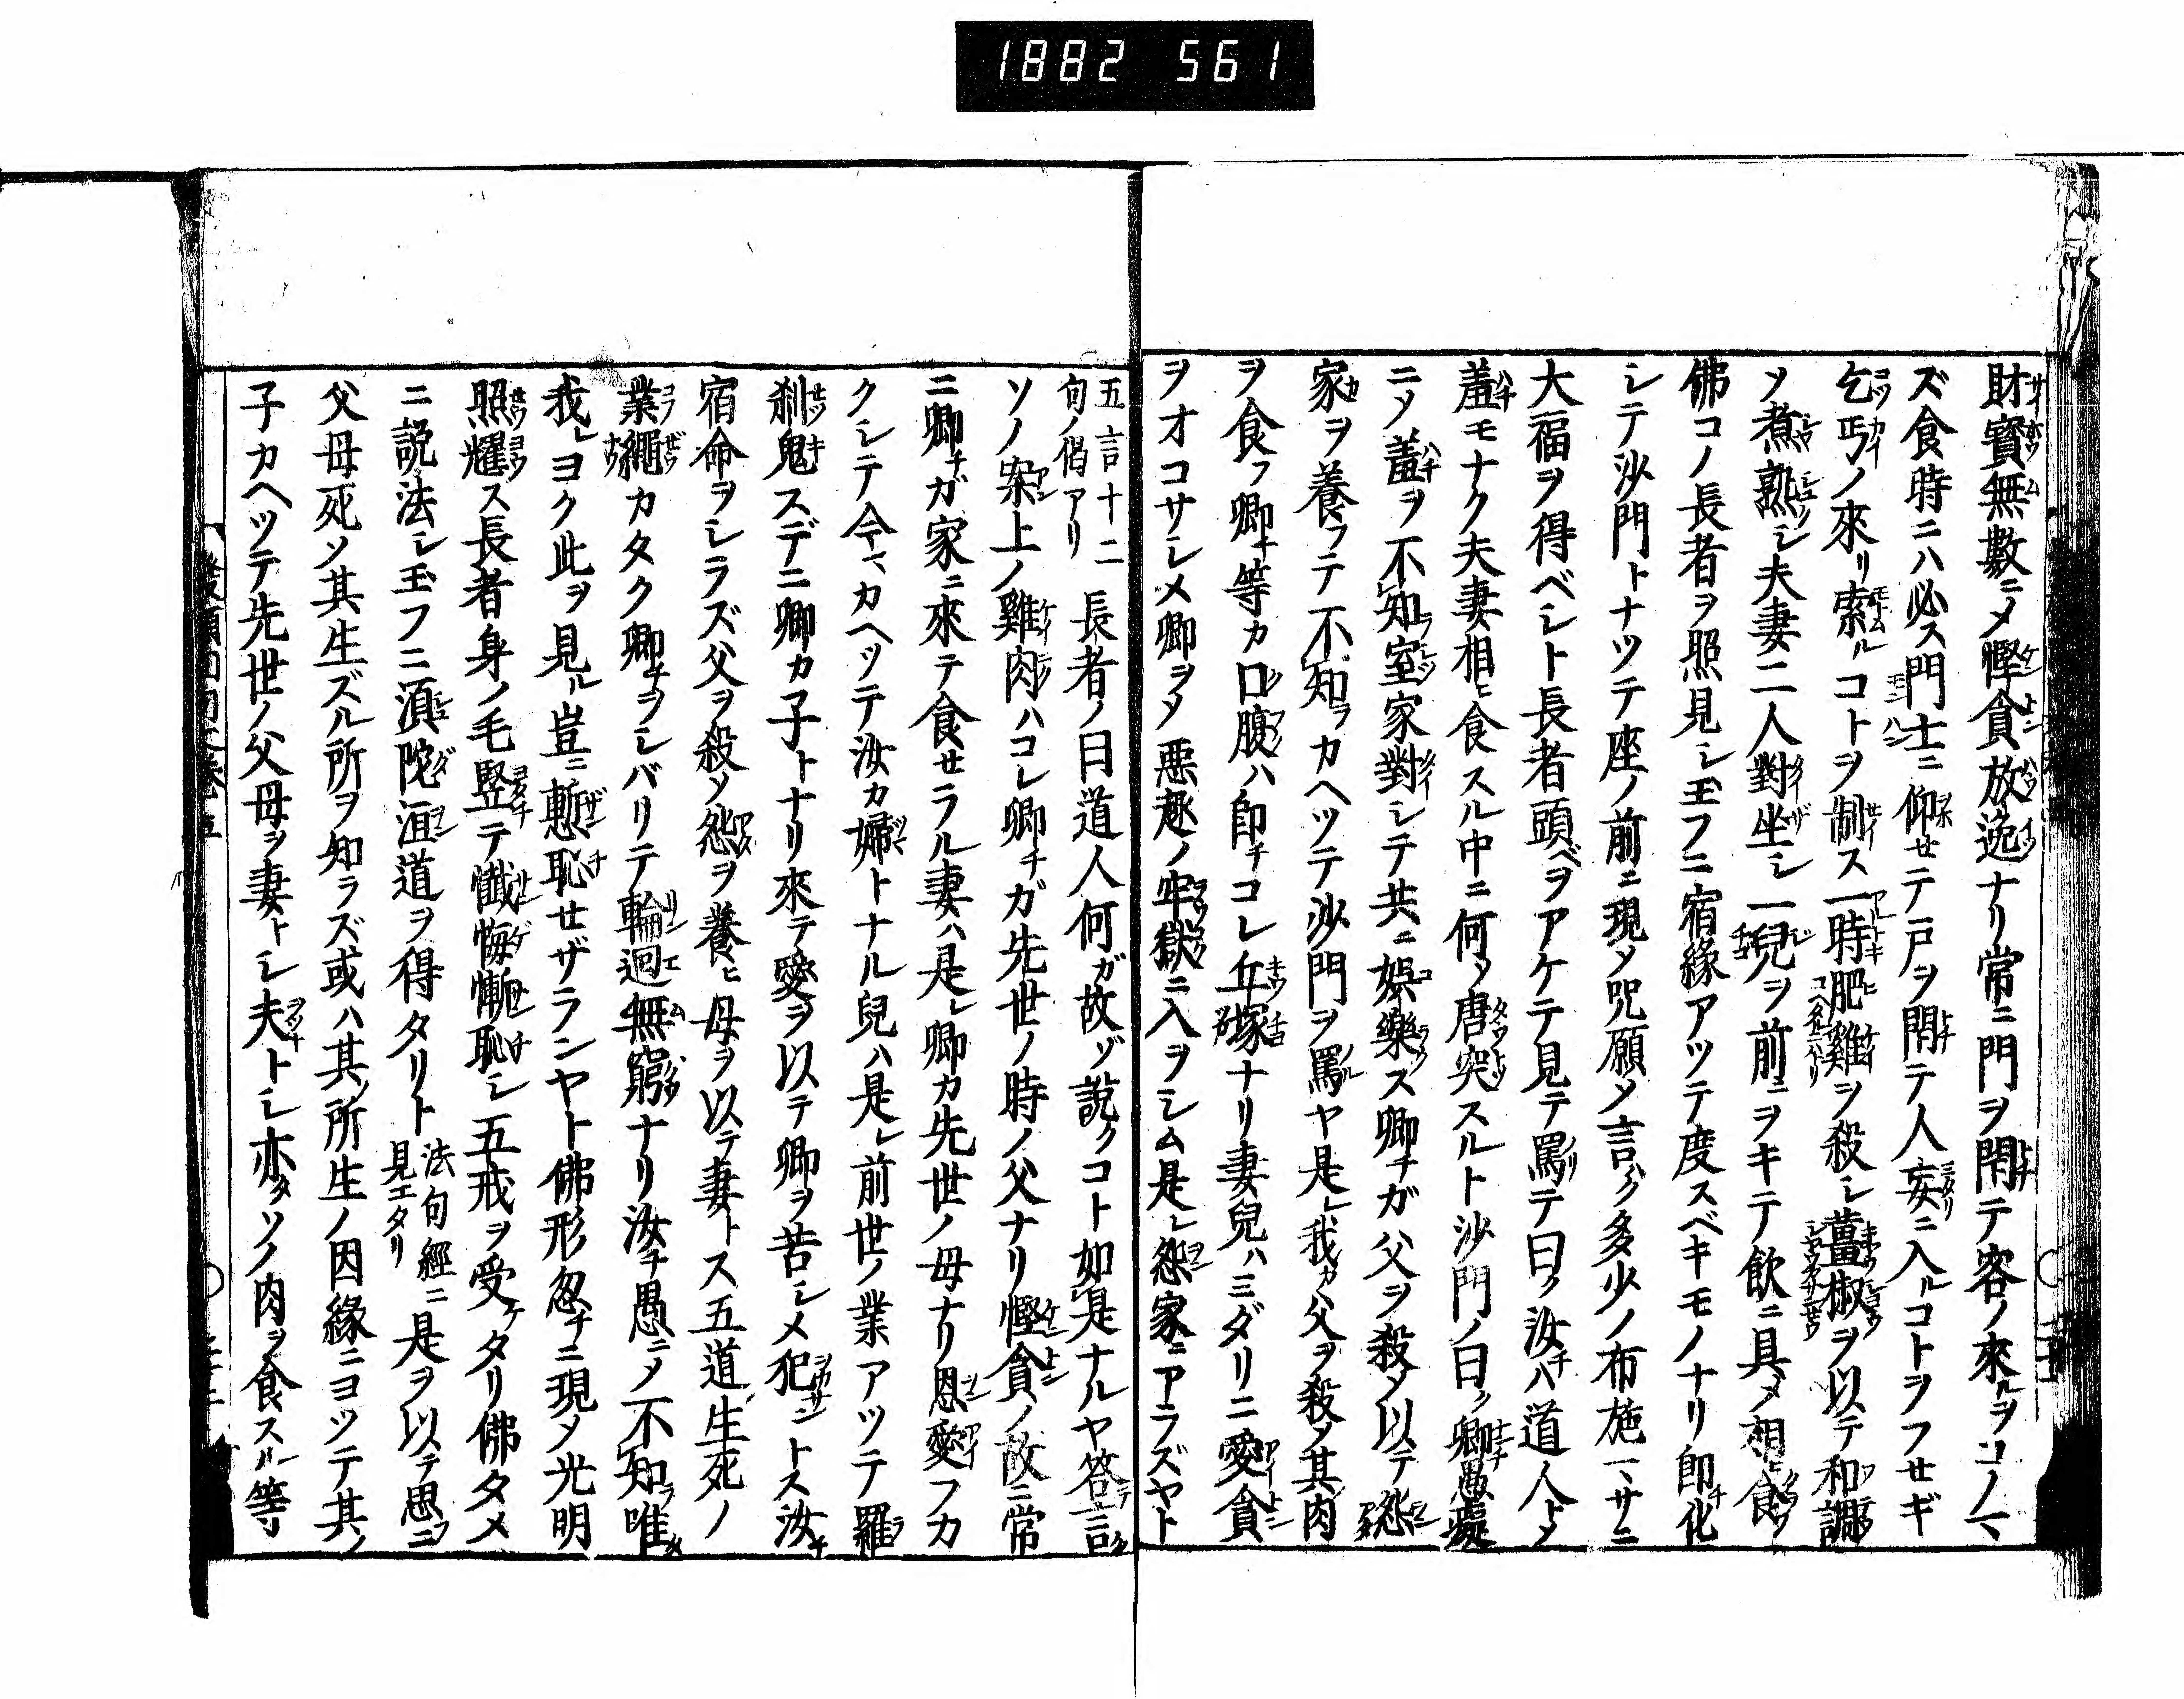 1882 561
財寶無數ニメ慳貪放逸ナリ常ニ門ヲ閇テ客ノ來ルヲコノマ
ズ食時ニハ必ス門士ニ仰セテ戸ヲ閇テ人妄ニ入ルコトヲフセギ
乞丐ノ來リ索ルコトヲ制ス一時肥雞ヲ殺シ薑椒ヲ以テ和調
ソ煮熟シ夫妻二人對坐シ一兒ヲ前ニヲキテ飲ニ具メ相ヒ食
佛コノ長者ヲ照見シ玉フニ宿緣アツテ度スベキモノナリ即チ化
シテ沙門トナツテ座ノ前ニ現メ咒願メ言ク多少ノ布施一ヽサニ
大福ヲ得ベシト長者頭ベヲアケテ見テ罵テ曰ク汝チハ道人トメ
羞モナク夫妻相ヒ食スル中ニ何メ唐突スルト沙門ノ曰ク卿愚癡
ニメ羞ヲ不知室家對シテ共ニ娯樂ス卿チガ父ヲ殺メ以テ怨
家ヲ養フテ不知ラカヘツテ沙門ヲ罵ルヤ是レ我カ父ヲ殺メ其肉
ヲ食フ卿チ等カ口腹ハ即チコレ丘塚ナリ妻兒ハミダリニ愛貪
ヲオコサシメ卿ヲメ惡趣ノ牢獄ニ入ヲシム是レ怨家ニアラズヤト
五言十二
句ノ偈アリ
長者ノ曰道人何ガ故ゾ說クコト如是ナルヤ答テ言ク
ソノ案上ノ雞肉ハコレ卿チガ先世ノ時ノ父ナリ慳貪ノ故ニ常
ニ卿チガ家ニ來テ食セラル妻ハ是レ卿カ先世ノ母ナリ恩愛フカ
クシテ今マカヘツテ汝カ婦トナル兒ハ是レ前世ノ業アツテ羅
刹鬼スデニ卿カ子トナリ來テ愛ヲ以テ卿ヲ苦シメ犯サントス汝チ
宿命ヲシラズ父ヲ殺ソ怨ヲ養ヒ母ヲ以テ妻トス五道生死ノ
業繩カタク卿チヲシバリテ輪迴無窮ナリ汝チ愚ニメ不知ラ唯
我レヨク此ヲ見ル豈ニ慙恥セザランヤト佛形忽チニ現メ光明
照耀ス長者身ノ毛竪テ懺悔慚恥シ五戒ヲ受ケタリ佛タメ
ニ說法シ玉フニ湏陀洹道ヲ得タリト
法句經ニ
見エタリ
是ヲ以テ思フニ
父母死ソ其生ズル所ヲ知ラズ或ハ其ノ所生ノ因緣ニヨツテ其ノ
子カヘツテ先世ノ父母ヲ妻トシ夫トシ亦タソノ肉ヲ食スル等